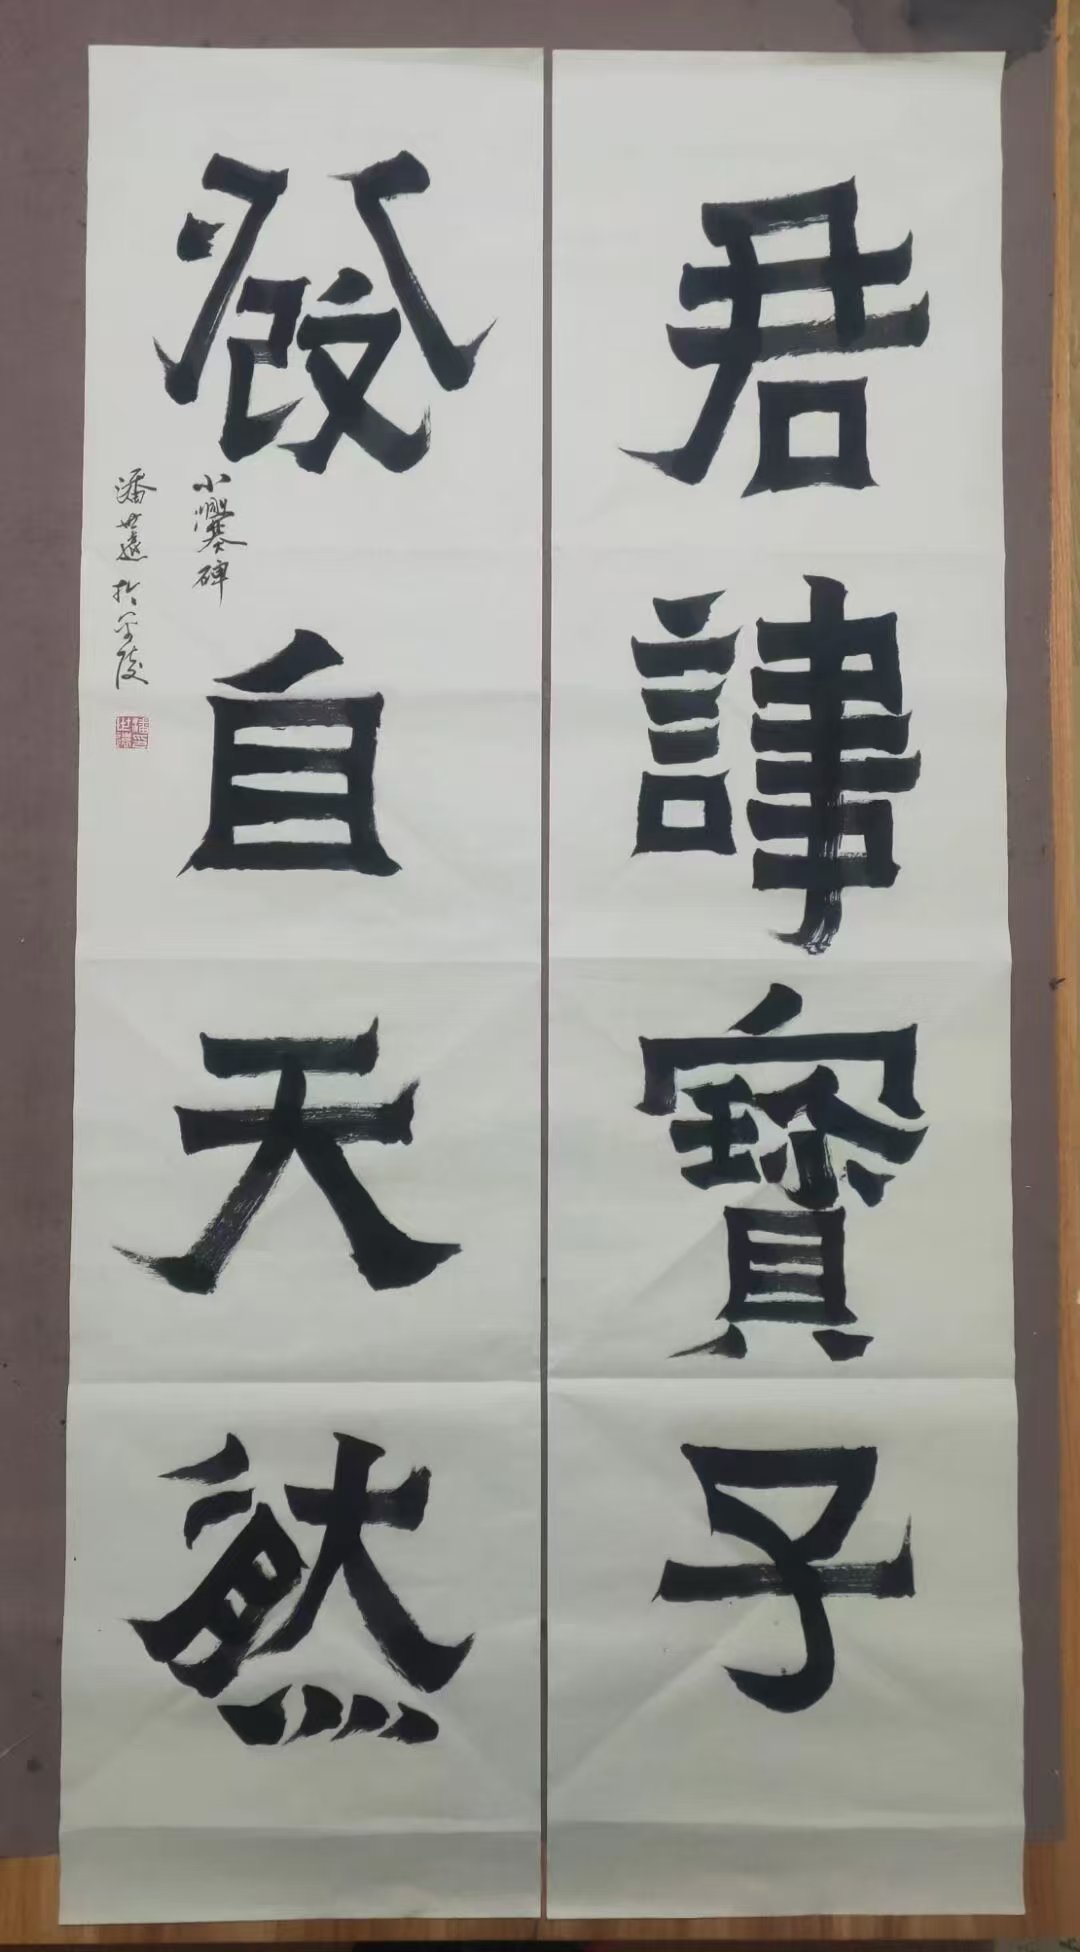 君諱寶子
發自天然
小爨碑
潘世遠於金陵